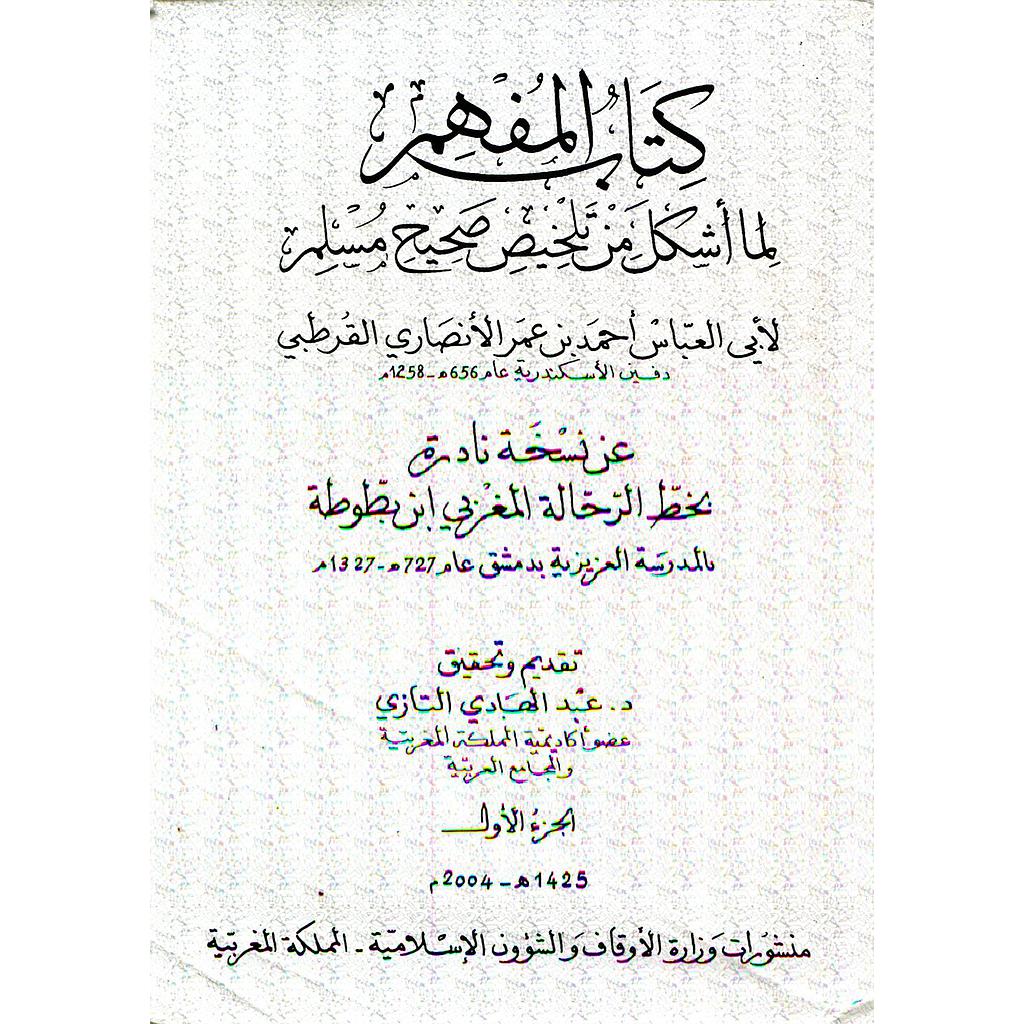 كِتَابُ المُفْهِم
لِمَا أَشْكَلَ مِنْ تَلْخِيصِ صَحِيحِ مُسْلِم
لأبي العبّاسْ أحمَد بن عمَر الأنصَاري القُرطبي
دفين الأسكندرية عام 656ھ - 1258م
عن نسْخَة نادرة
بخطّ الرّحّالة المغْربي ابن بطّوطة
بالمدرسَة العزيزية بدمشق عام 727ھ - 1327م
تقديم وتحقيق
د. عبْد الهَادي التازي
عضو أكاديميّة المملكة المغربيّة
والمجامع العربيّة
الجزءُ الأول
1425ھ - 2004م
منشورات وَزارة الأوقاف وَالشؤون الإسْلاميّة - المملكة المغربيّة